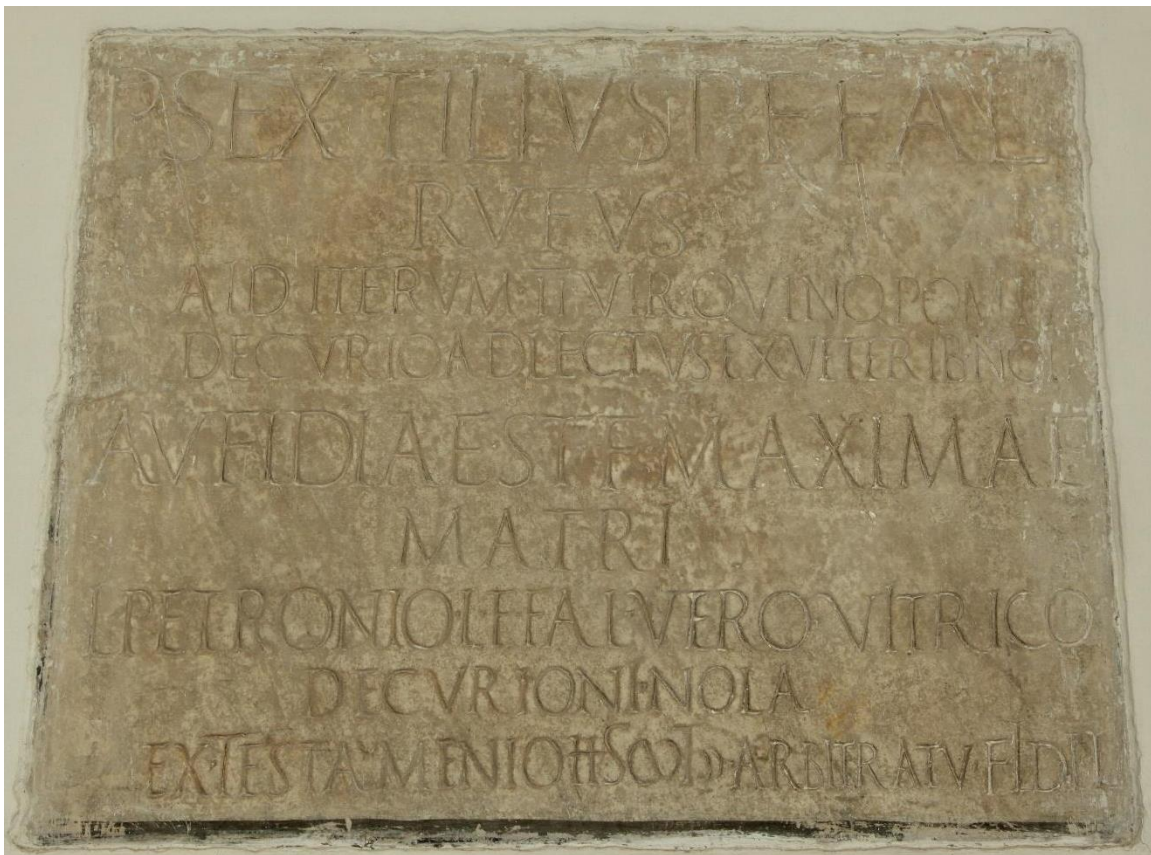 P SEXTILIVS P F FAL
RVFVS
AID ITERVM II VIR QVINQ POMP
DECVRIO ADLECTVS EX VETERIB NOL
AVFIDIAE ST F MAXIMAE
MATRI
L PETRONIO L F FAL VERO VITRICO
DECVRIONI NOLA
EX TESTAMENTO ARBITRATV FIDI L